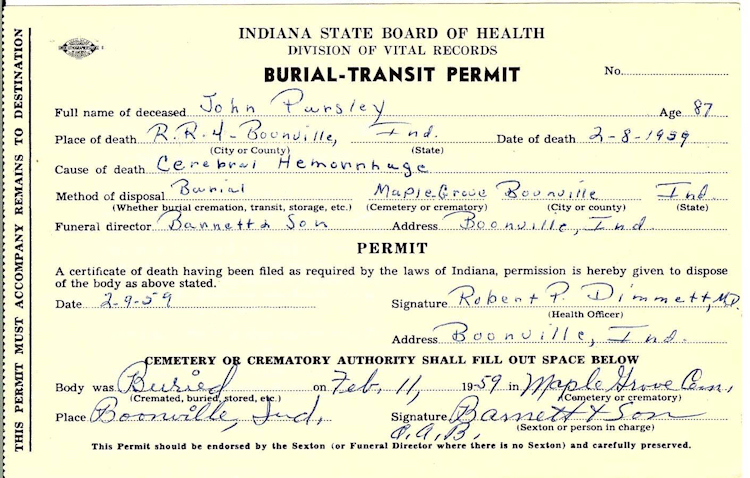 INDIANA STATE BOARD OF HEALTH
DIVISION OF VITAL RECORDS
BURIAL-TRANSIT PERMIT
No.
Full name of deceased John Parsley Age 87
Place of death R.R.4-Boonville, Ind. Date of death 2-8-1959
(City or County) (State)
Cause of death Cerebral Hemorrhage
Method of disposal Burial Maple Grove Boonville Ind.
(Whether burial cremation, transit, storage, etc.) (Cemetery or crematory) (City or county) (State)
Funeral director Barnett & Son Address Boonville, Ind.
PERMIT
A certificate of death having been filed as required by the laws of Indiana, permission is hereby given to dispose
of the body as above stated.
Date 2-9-59 Signature Robert P. Dimmett, M.D.
(Health Officer)
Address Boonville, Ind.
CEMETERY OR CREMATORY AUTHORITY SHALL FILL OUT SPACE BELOW
Body was Buried on Feb. 11, 1959 in Maple Grove Cem.
(Cremated, buried, stored, etc.) (Cemetery or crematory)
Place Boonville, Ind. Signature Barnett & Son
(Sexton or person in charge)
C.A.B.
This Permit should be endorsed by the Sexton (or Funeral Director where there is no Sexton) and carefully preserved.
THIS PERMIT MUST ACCOMPANY REMAINS TO DESTINATION